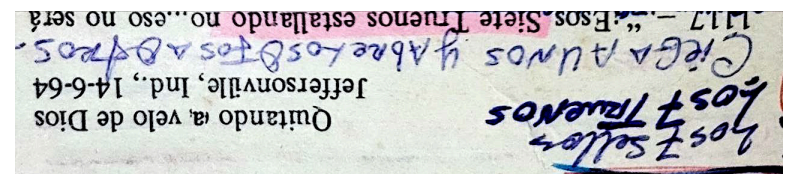 Los 7 sellos
Los 7 TRUENOS
Quitando velo de Dios
Jeffersonville, Ind., 14-6-64
CIEGA A UNOS Y ABRE LOS OJOS A OTROS.
“¡Esos Siete Truenos estallando no...eso no será